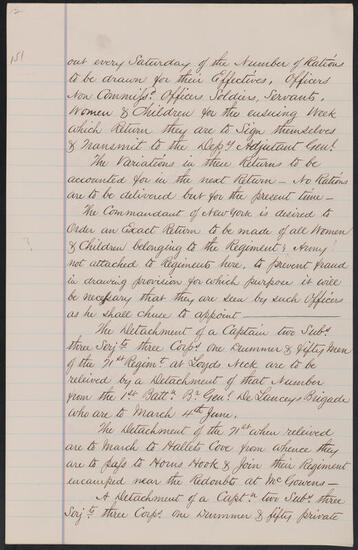 151
out every Saturday of the Number of Rations
to be drawn for their Effectives, Officers
Non Commiss.d Officers Soldiers, Servants,
Women & Children for the ensuing Week
which Return they are to Sign themselves
& Transmit to the Dep.y Adjutant Gen.l
The Variations in these Returns to be
accounted for in the next Return — No Rations
are to be delivered but for the present time —
The Commandant of New York is desired to
Order an Exact Return to be made of all Women
& Children belonging to the Regiments & Army
not attached to Regiments here, to prevent fraud
in drawing provision for which purpose it will
be necessary that they are seen by such Officers
as he shall chuse to appoint —
The Detachment of a Captain two Subs.
three Serj.ts three Corp.s one Drummer & fifty Men
of the 71st Regim.t at Loyds Neck are to be
releived by a Detachment of that Number
from the 1st Batt.n B.r Gen.l De Lanceys Brigade
who are to March 4th June.
The Detachment of the 71st when releived
are to March to Hallets Cove from whence they
are to pass to Horns Hook & Join their Regiment
encamped near the Redoubts at McGowens —
A Detachment of a Capt.n two Subs. three
Serj.ts three Corp.s one Drummer & fifty private